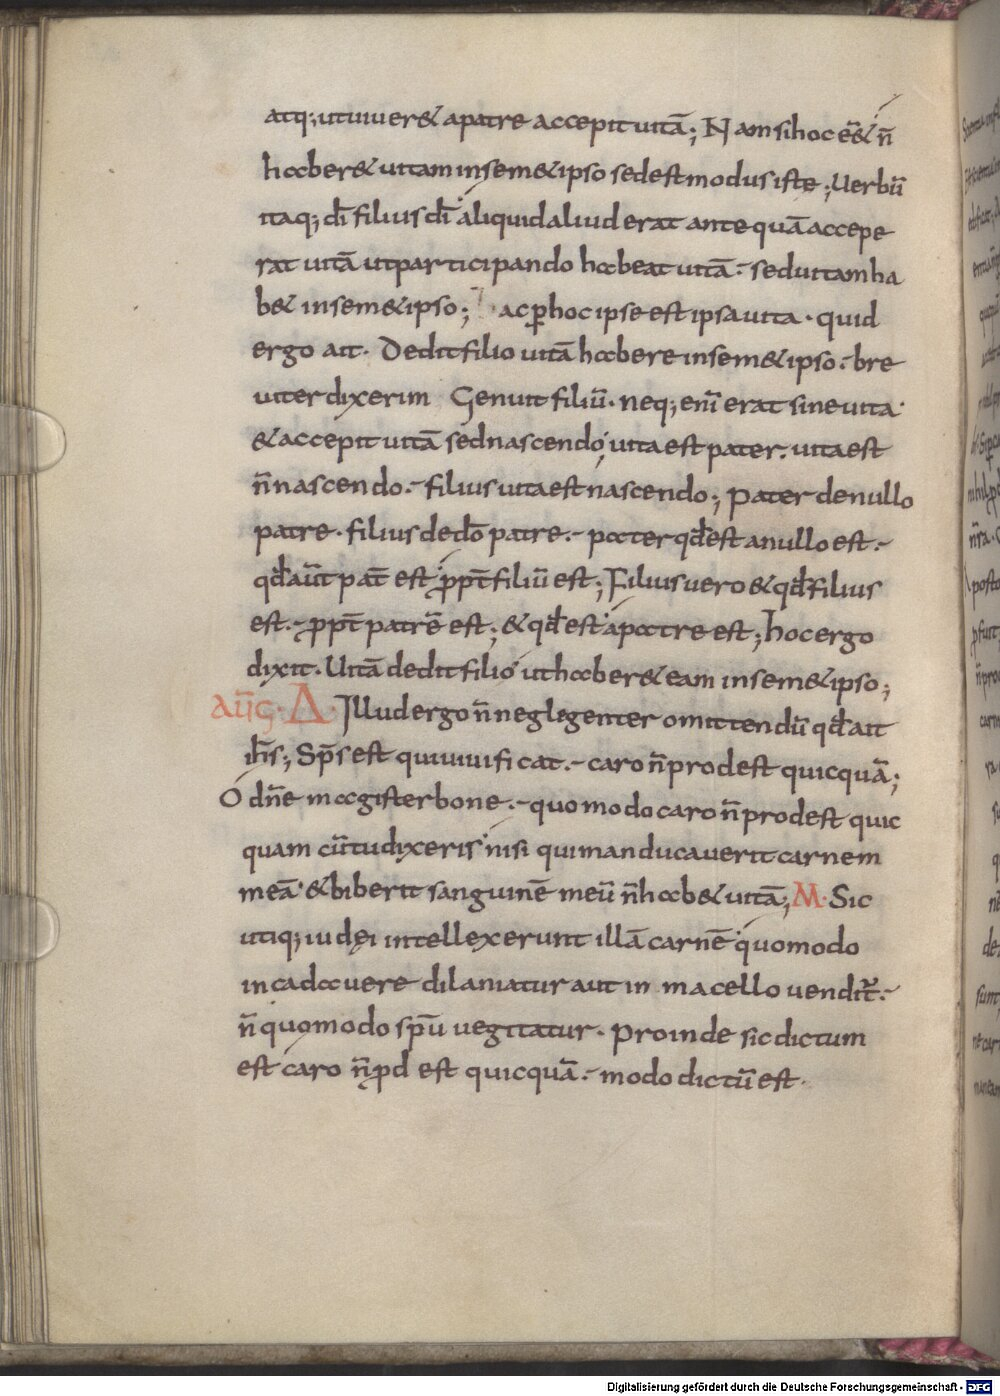 atq; utuiuer& apatre accepit uitā; Nam si hoc eē& n̄
haber& uitam insem&ipso sed est modus iste; Uerbū
itaq; dī filius dī aliquid aliud erat antequā accepe
rat uitā ut participando habeat uitā:- sed uitam ha
b& insem&ipso; ac ꝑ hoc ipse est ipsa uita · quid
ergo ait · Dedit filio uitā habere insem&ipso :- bre
uiter dixerim Genuit filiū · neq; enī erat sine uita
& accepit uitā sed nascendo; uita est pater · uita est
n̄ nascendo :- filius uita est nascendo; Pater de nullo
patre · filius de dō patre :- pater qđ est a nullo est :-
qđ aūt pat̄ est ꝓpt̄ filiū est; Filius uero & qđ filius
est :- ꝓpt̄ patrē est; & qđ est a patre est; hoc ergo
dixit · Uitā dedit filio ut haber& eam insem&ipso;
AUG · A · Illud ergo n̄ neglegenter omittendū qđ ait
ih̄s; Sp̄s est qui uiuificat :- caro n̄ prodest quicquā;
O dn̄e magister bone :- quomodo caro n̄ prodest quic
quam cū tu dixeris nisi qui manducauerit carnem
meā & biberit sanguinē meū n̄ hab& uitā; M · Sic
utiq; iudęi intellexerunt illā carnē quomodo
in cadauere dilaniatur aut in macello uendit̄ :-
n̄ quomodo sp̄u uegitatur · Proinde sic dictum
est caro n̄ ꝓd est quicquā :- modo dictū est ·
Digitalisierung gefördert durch die Deutsche Forschungsgemeinschaft - DFG